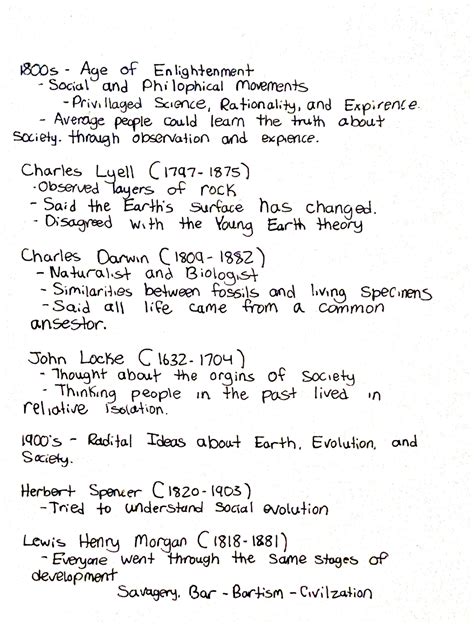 1800s - Age of Enlightenment
- Social and Philophical Movements
- Privillaged Science, Rationality, and Expirence.
- Average people could learn the truth about
Society. through observation and expence.
Charles Lyell (1797-1875)
- Observed layers of rock
- Said the Earth's surface has changed.
- Disagreed with the Young Earth theory
Charles Darwin (1809-1882)
- Naturalist and Biologist
- Similarities between fossils and living specimens
- Said all life came from a common
ansestor.
John Locke (1632-1704)
- Thought about the orgins of Society
- Thinking people in the past lived in
reliative isolation.
1900's - Radital Ideas about Earth, Evolution, and
Society.
Herbert Spencer (1820-1903)
- Tried to understand social evolution
Lewis Henry Morgan (1818-1881)
- Everyone went through the same stages of
development
Savagery. Bar - Bartism - Civilzation